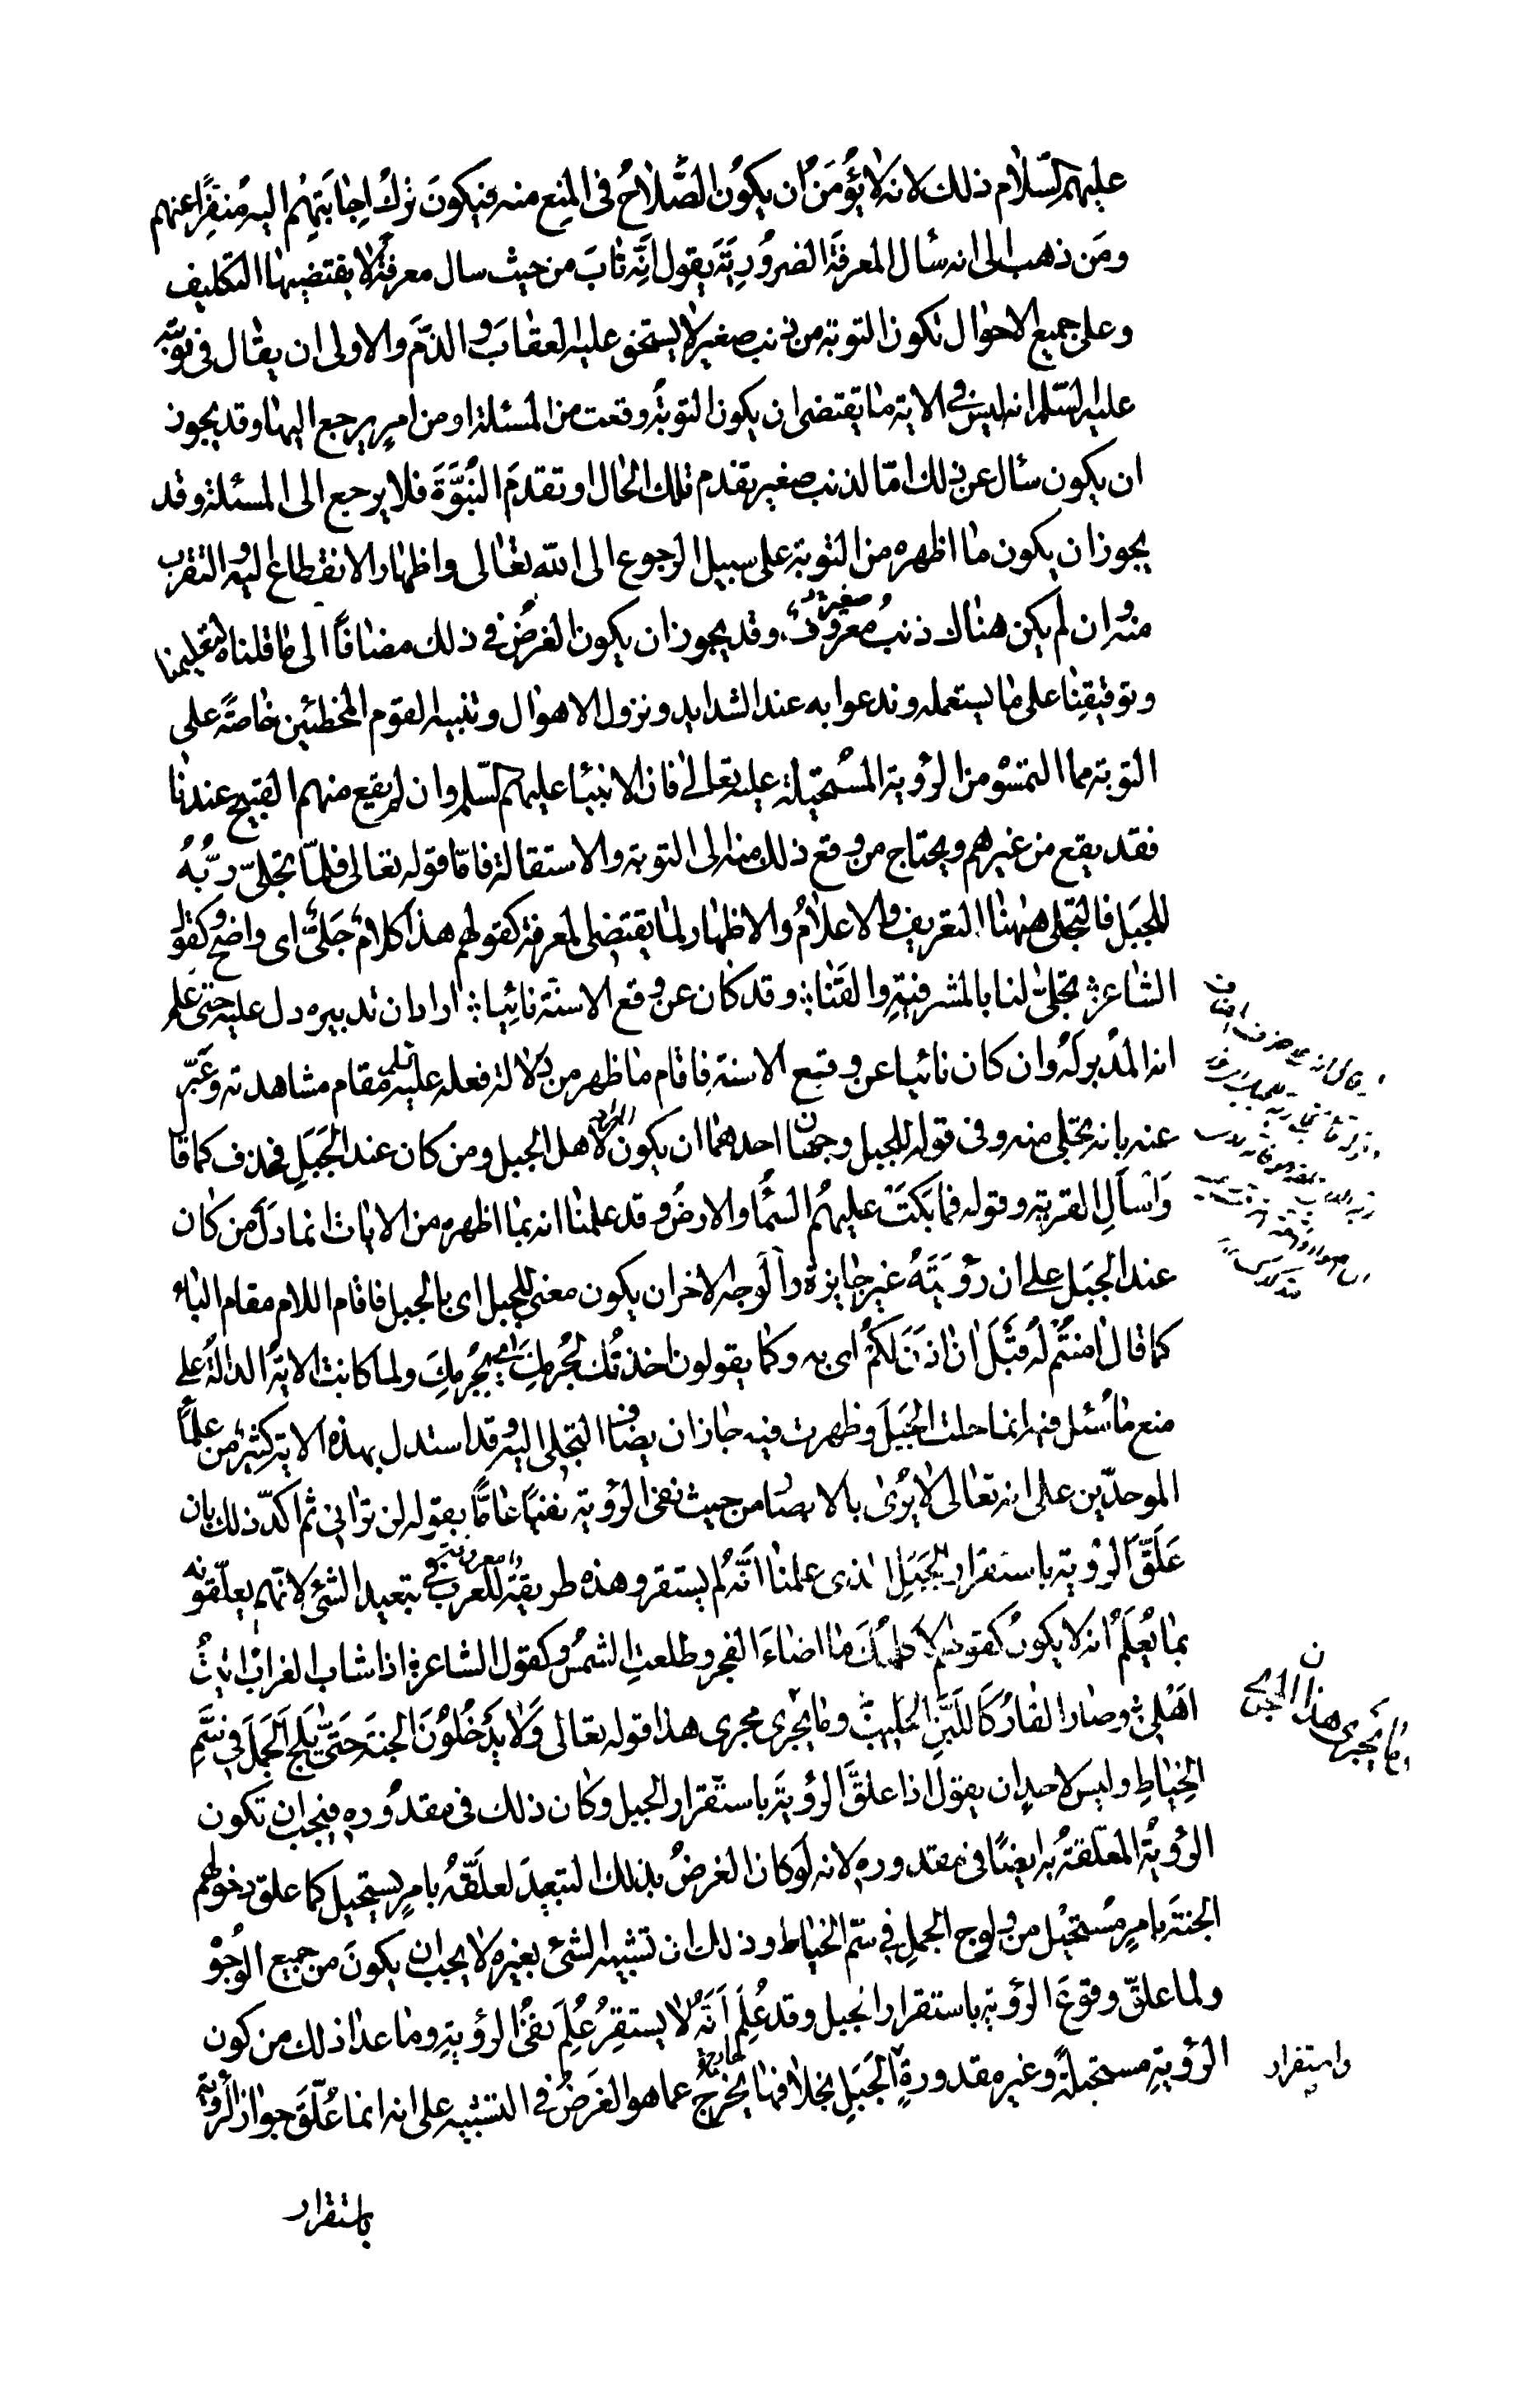 عليهم السّلام ذلك لانه لا يُؤمَنُ ان يكونُ الصَّلاحُ فى المنع منه فيكونَ تركُ اجابَتِهِم اليه مُنفِّرًا عنهم
ومَن ذهب الى انه سأل المعرفَةَ الضرُورِيَّةَ يقول انّه تابَ من حيث سال معرفةً لا يقتضيها التكليف
وعلى جميع الاحوال تكون التوبة من ذنب صغير لا يستحق عليه العقابَ و الذّمَ والاولى ان يقال فى توبته
عليه السّلم انه ليس فى الاية ما يقتضى ان يكون التوبةُ وقعت من المسئلة او من امرٍ يرجع اليها وقد يجوز
ان يكون سأل عن ذلك امّا لذنب صغير تقدم تلك الحال او تقدمَ النُبُوَّةَ فلا يرجع الى المسئلة وقد
يجوز ان يكون ما اظهره من التوبة على سبيل الرجوع الى الله تعالى واظهار الانقطاع اليه و التقرب
منه وان لم يكن هناك ذنبُ معروفٌ صغيرٌ وقد يجوز ان يكون الغرضُ فى ذلك مضافًا الى ما قلناه تعليمنا
وتوقيفنا على ما يستعمله وندعوا به عند الشدايد ونزول الاهوال وتنبيه القوم المخطئين خاصّةً على
التوبة مما التمسُوه من الرؤية المسْتحيلة عليه تعالى فان الانبيا عليهم السّلم وان لم يقع منهم القبيح عندنا
فقد يقع من غيرهم ويحتاج من وقع ذلك منه الى التوبة والاستقالة فامّا قوله تعالى فلمّا تجلّى ربُّهُ
للجبَل فالتجلى ههنا التعريف والاعلامُ والاظهار لما يقتضى المعرفة كقولهم هذا كلامٌ جَلىٌّ اى واضح وكقول
الشاعر تجلّى لنا بالمشرفيّةِ والقَنا وقد كان عن وقع الاسنّة نائيا اراد ان تدبيره دل عليه حتى علم
انه المدْبر لَهُ وان كان نائيا عن وقع الاسنة فاقام ما ظهر من دلالة فعله عليه مقام مشاهدته وعَبّر
عنه بانه تجلى منه وفى قوله للجبل وجهان احدهما ان يكون المراد لاهل الجبل ومن كان عند الجَبَلِ فحذف كما قا
وَاسأَلِ القرية وقوله فما بَكَتْ عليهُم السَّمَا والارضُ وقد علمنا انه بما اظهره من الايات انما دَلَّ من كان
عند الجبَل على ان رؤيَتَهُ غير جايزة والوجه الاخر ان يكون معنى للجبل اى بالجبل فاقام اللام مقام الباء
كما قال امنتُم لَهُ قَبَلَ ان اذَنَ لَكُمُ اى به وكما يقولون اخذتُك لجُرمِكَ اى بجُرمِكَ ولما كانت الايةُ الدالّةُ على
منع ما سُئل فيه انما حلت الجَبَلَ وظهرت فيه جاز ان يضاف التجلى اليه وقد استدل بهذه الاية كثيرٌ من علما
الموحدّين على انه تعالى لا يُرىٰ بالابصار من حيث نفى الرؤية نفيًا عامًّا بقوله لن ترانى ثم اكدّ ذلك بان
عَلَّقَ الرؤية باستقرار الجَبَلِ الذى علمنا انَّه لم يستقر وهذه طريقةٌ معروفة للعرب فى تبعيد الشئ لانّهم يعلّقونه
بما يُعلَمُ انه لا يكونُ كقولهم لا كلمتُكَ ما اضاءَ الفجر وطلعتِ الشمسُ وكقول الشاعر اذا شاب الغراب اتيتُ
اهْلى وصار القارُ كَاللَبنِ الحليب وما يجرى مجرى هذا قوله تعالى وَلا يدَخُلُونَ الجنةَ حَتىّ يَلجَ الجَمَلُ فى سَمِّ
الخِياطِ وليس لاحدٍ ان يقول اذا علقَّ الرؤيَةَ باستقرار الجبل وكان ذلك فى مقدُوره فيجب ان تكون
الرؤيةُ المعَلّقةُ به ايضًا فى مقدوره لانه لَو كان الغرضُ بذلك التبعيدَ لعلَقّهُ بامرٍ يستحيل كما علق دخولهم
الجنةَ بامرٍ مُستحيْلٍ من ولوج الجملِ فى سمّ الخياط وذلك ان تشبيه الشئ بغيره لا يجب ان يكونَ من جميع الوُجُوْ
ولما علقّ وقوعَ الرؤية باستقرار الجبل وقد عُلِمَ اَنّهُ لا يستقِرُ عُلِمَ نفىُ الرؤيةِ وما عدا ذلك من كون
الرؤيةِ مستحيلةً وغير مقدورةٍ الجَبَلِ بخلافها يخرجُ عما هو الغَرضُ فى التشبيه على انه انما عُلّقَ جوازُ الرُّؤية
وما يجرى هذا المجرى
واستقرار
باستقرار